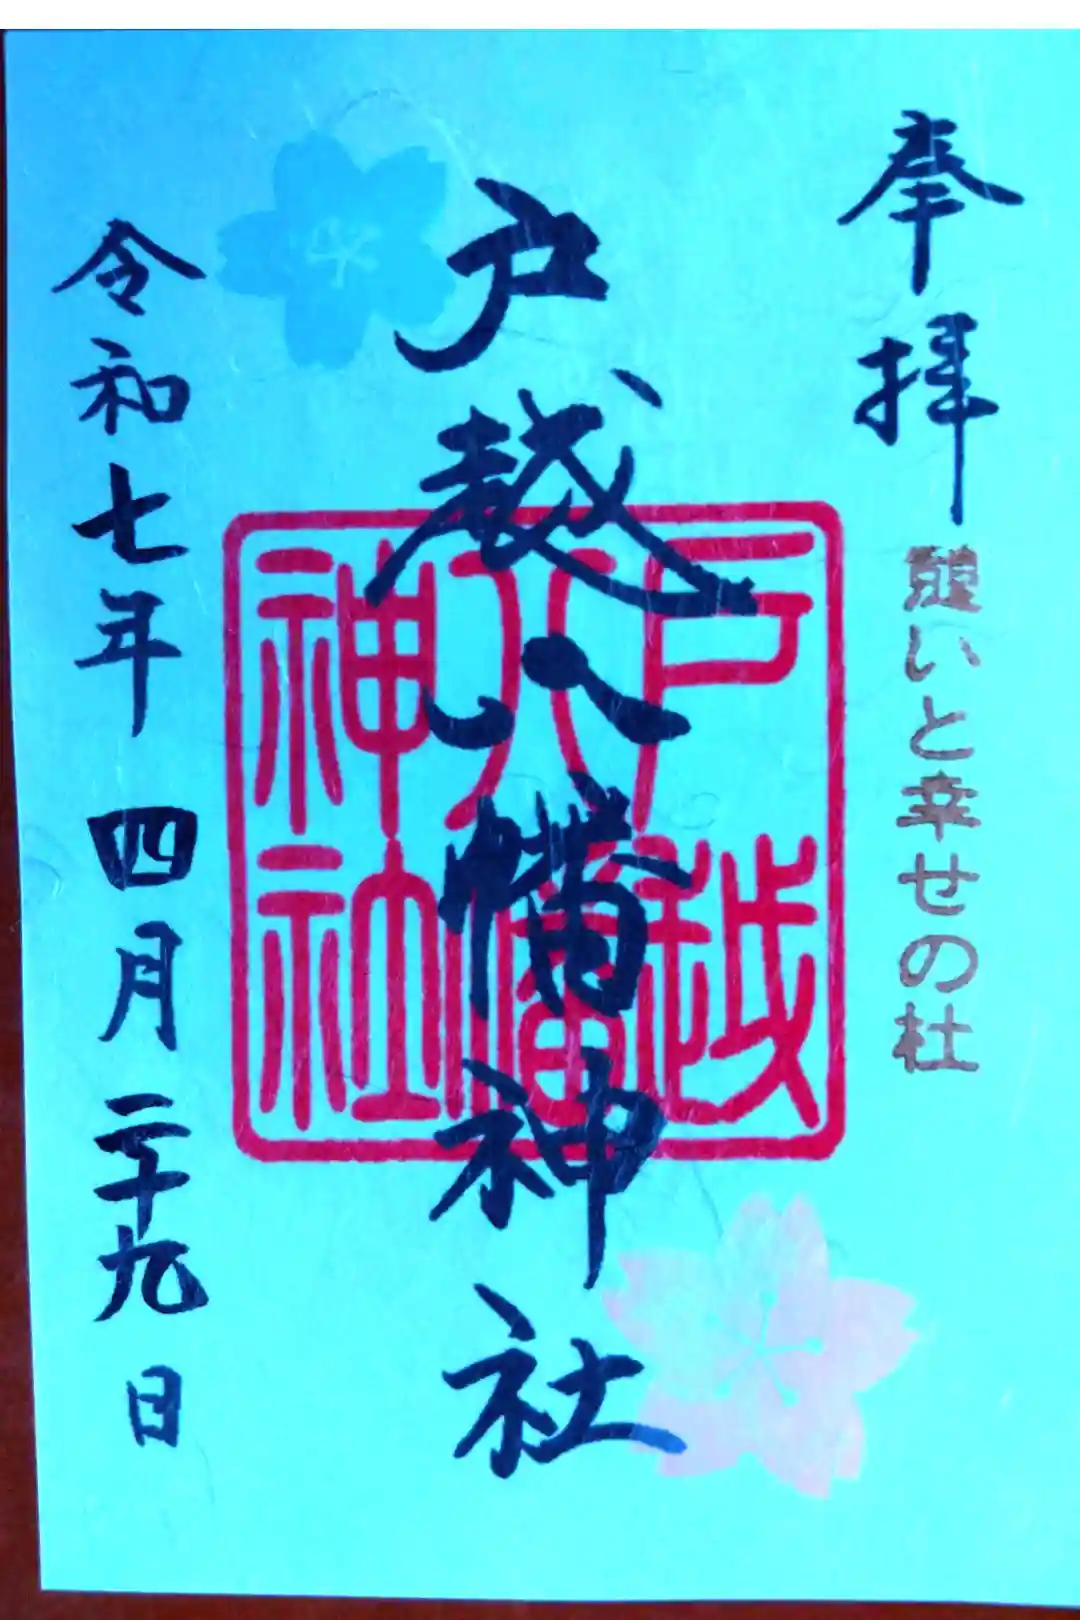 奉拝
憩いと幸せの杜
戸越八幡神社
戸越
八幡
神社
令和七年 四月 二十九日